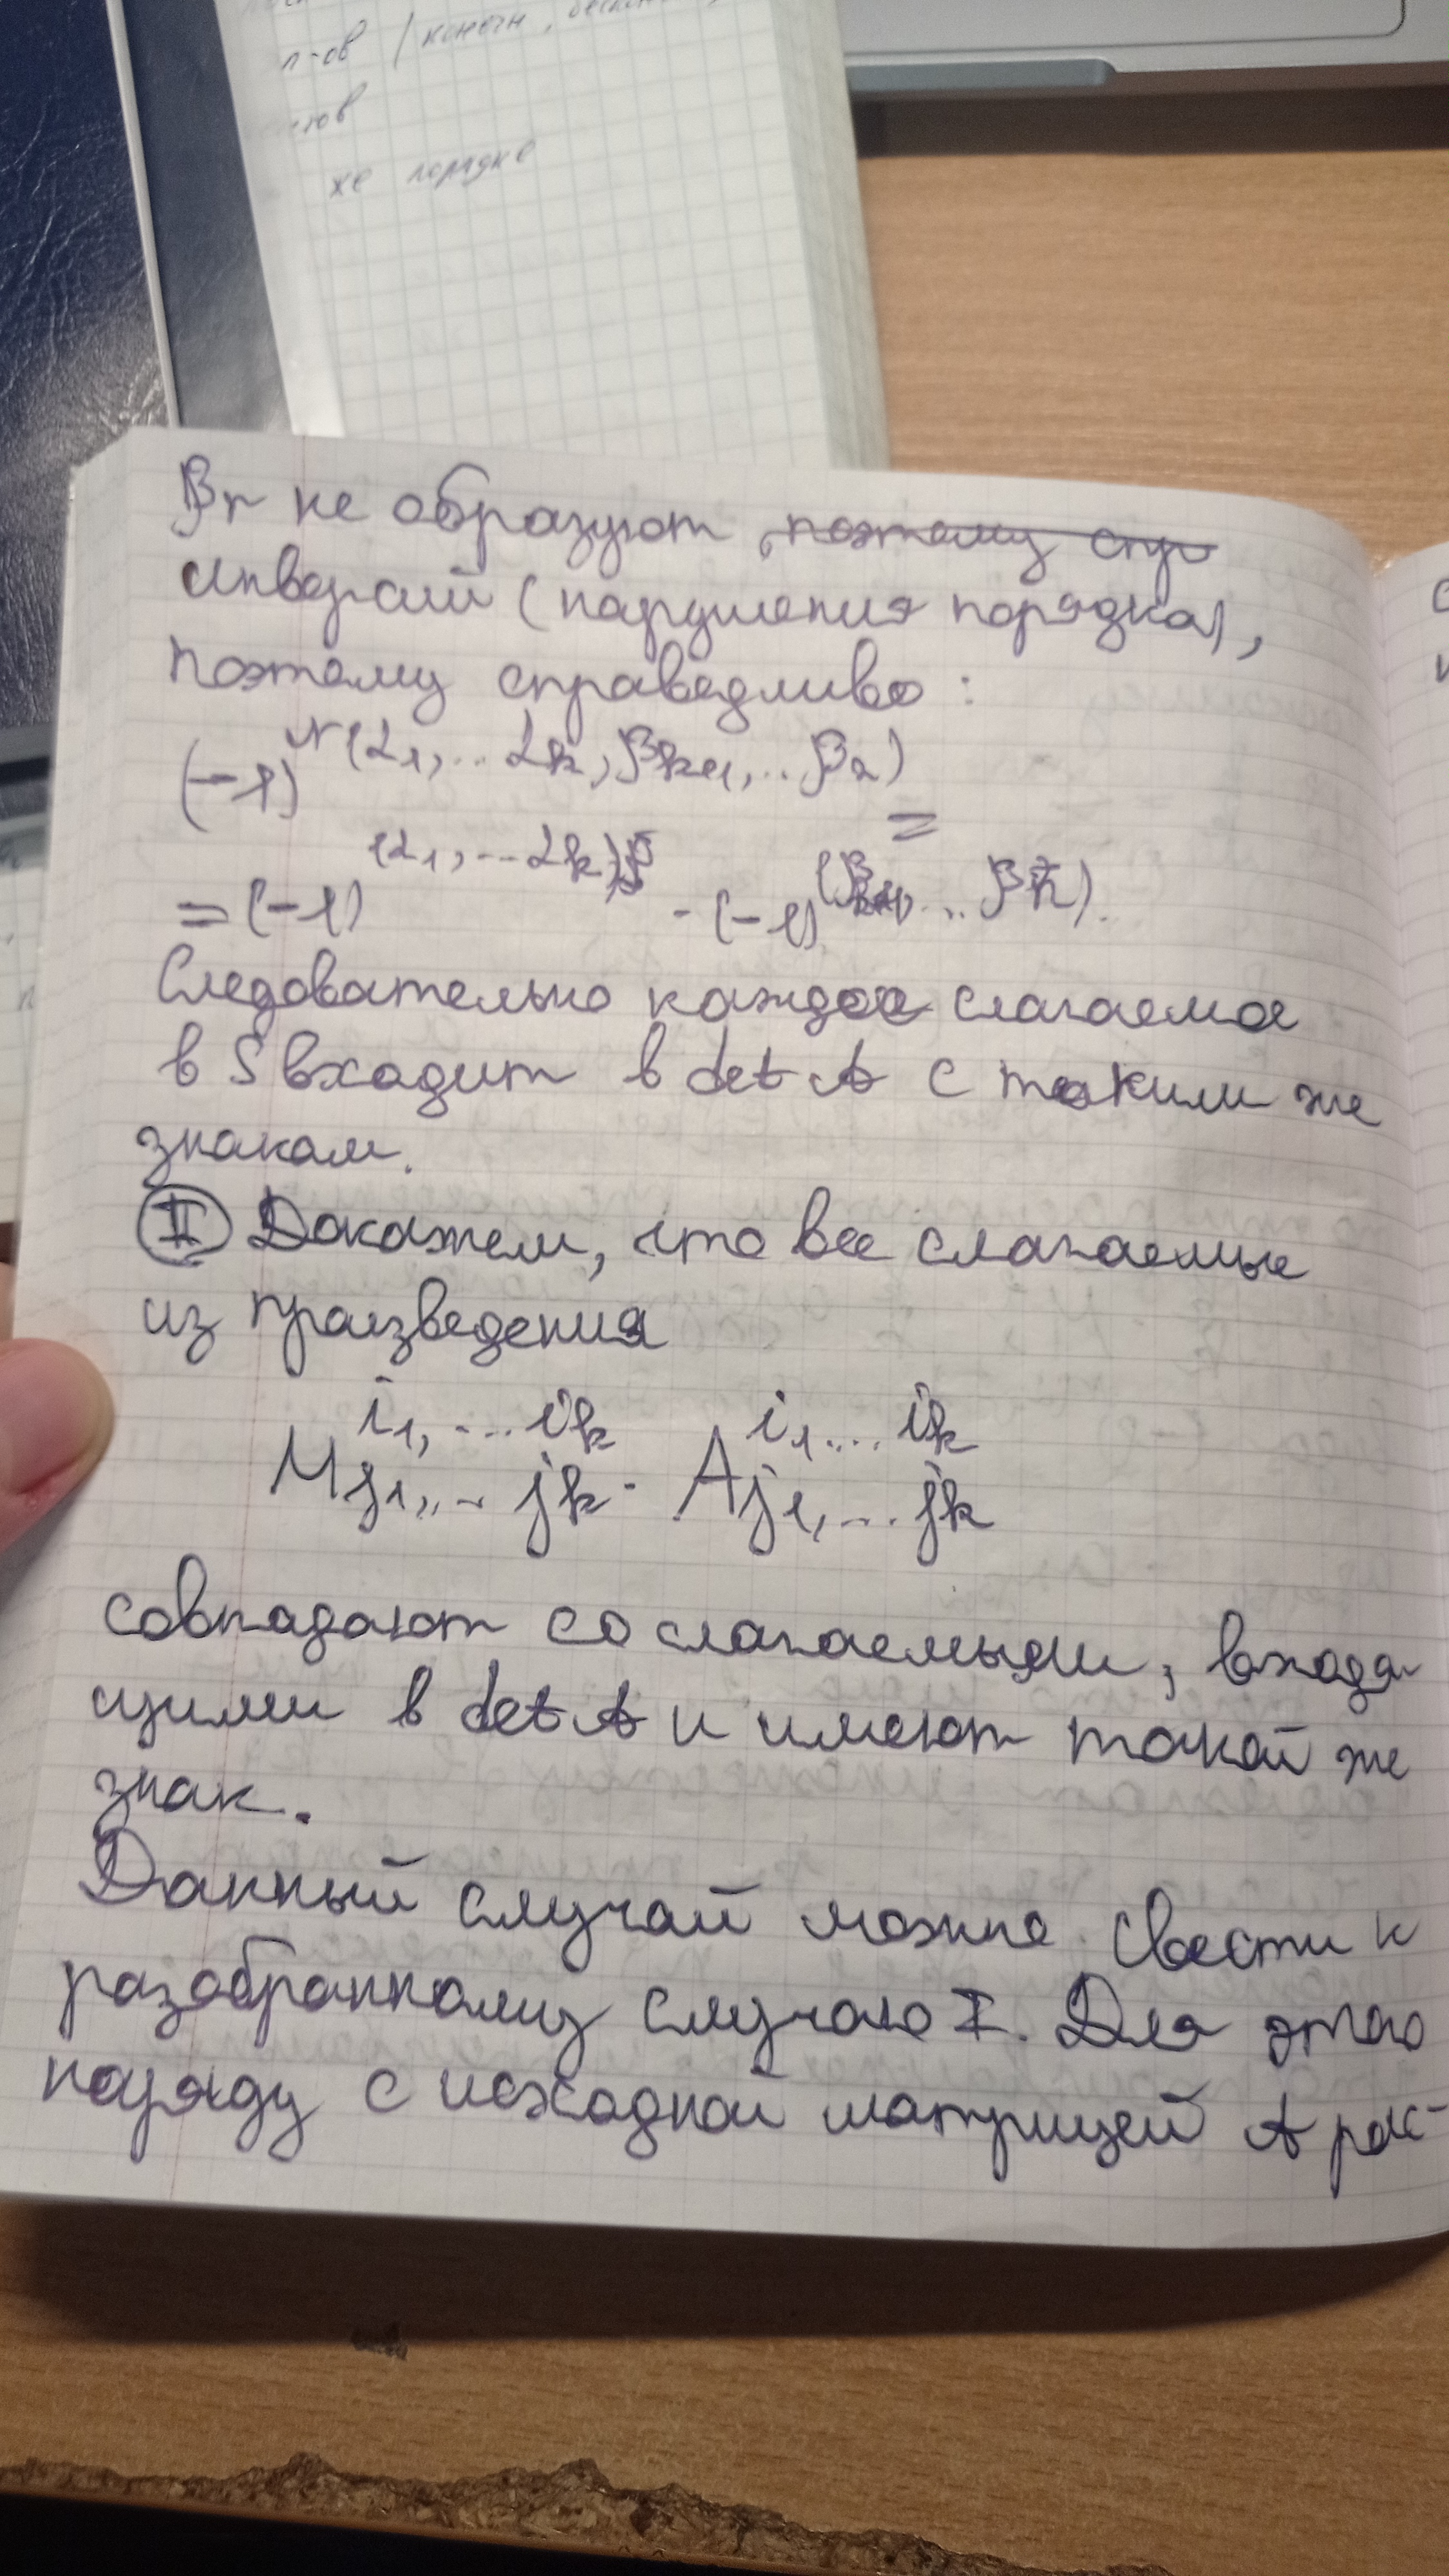 л-ов (конечн,
-тов
же порядке
βn не образуют, поэтому спр
инверсий (нарушения порядка),
поэтому справедливо:
(-1)^N(α1,... αk, βk+1,... βn) =
= (-1)^(α1,... αk) · (-1)^(βk+1,... βn).
Следовательно каждое слагаемое
в S входит в det A с таким же
знаком.
II Докажем, что все слагаемые
из произведения
M^{i1,... ik}_{j1,... jk} · A^{i1,... ik}_{j1,... jk}
совпадают со слагаемыми, входя-
щими в det A и имеют такой же
знак.
Данный случай можно свести к
разобранному случаю I. Для этого
наряду с исходной матрицей A рас-